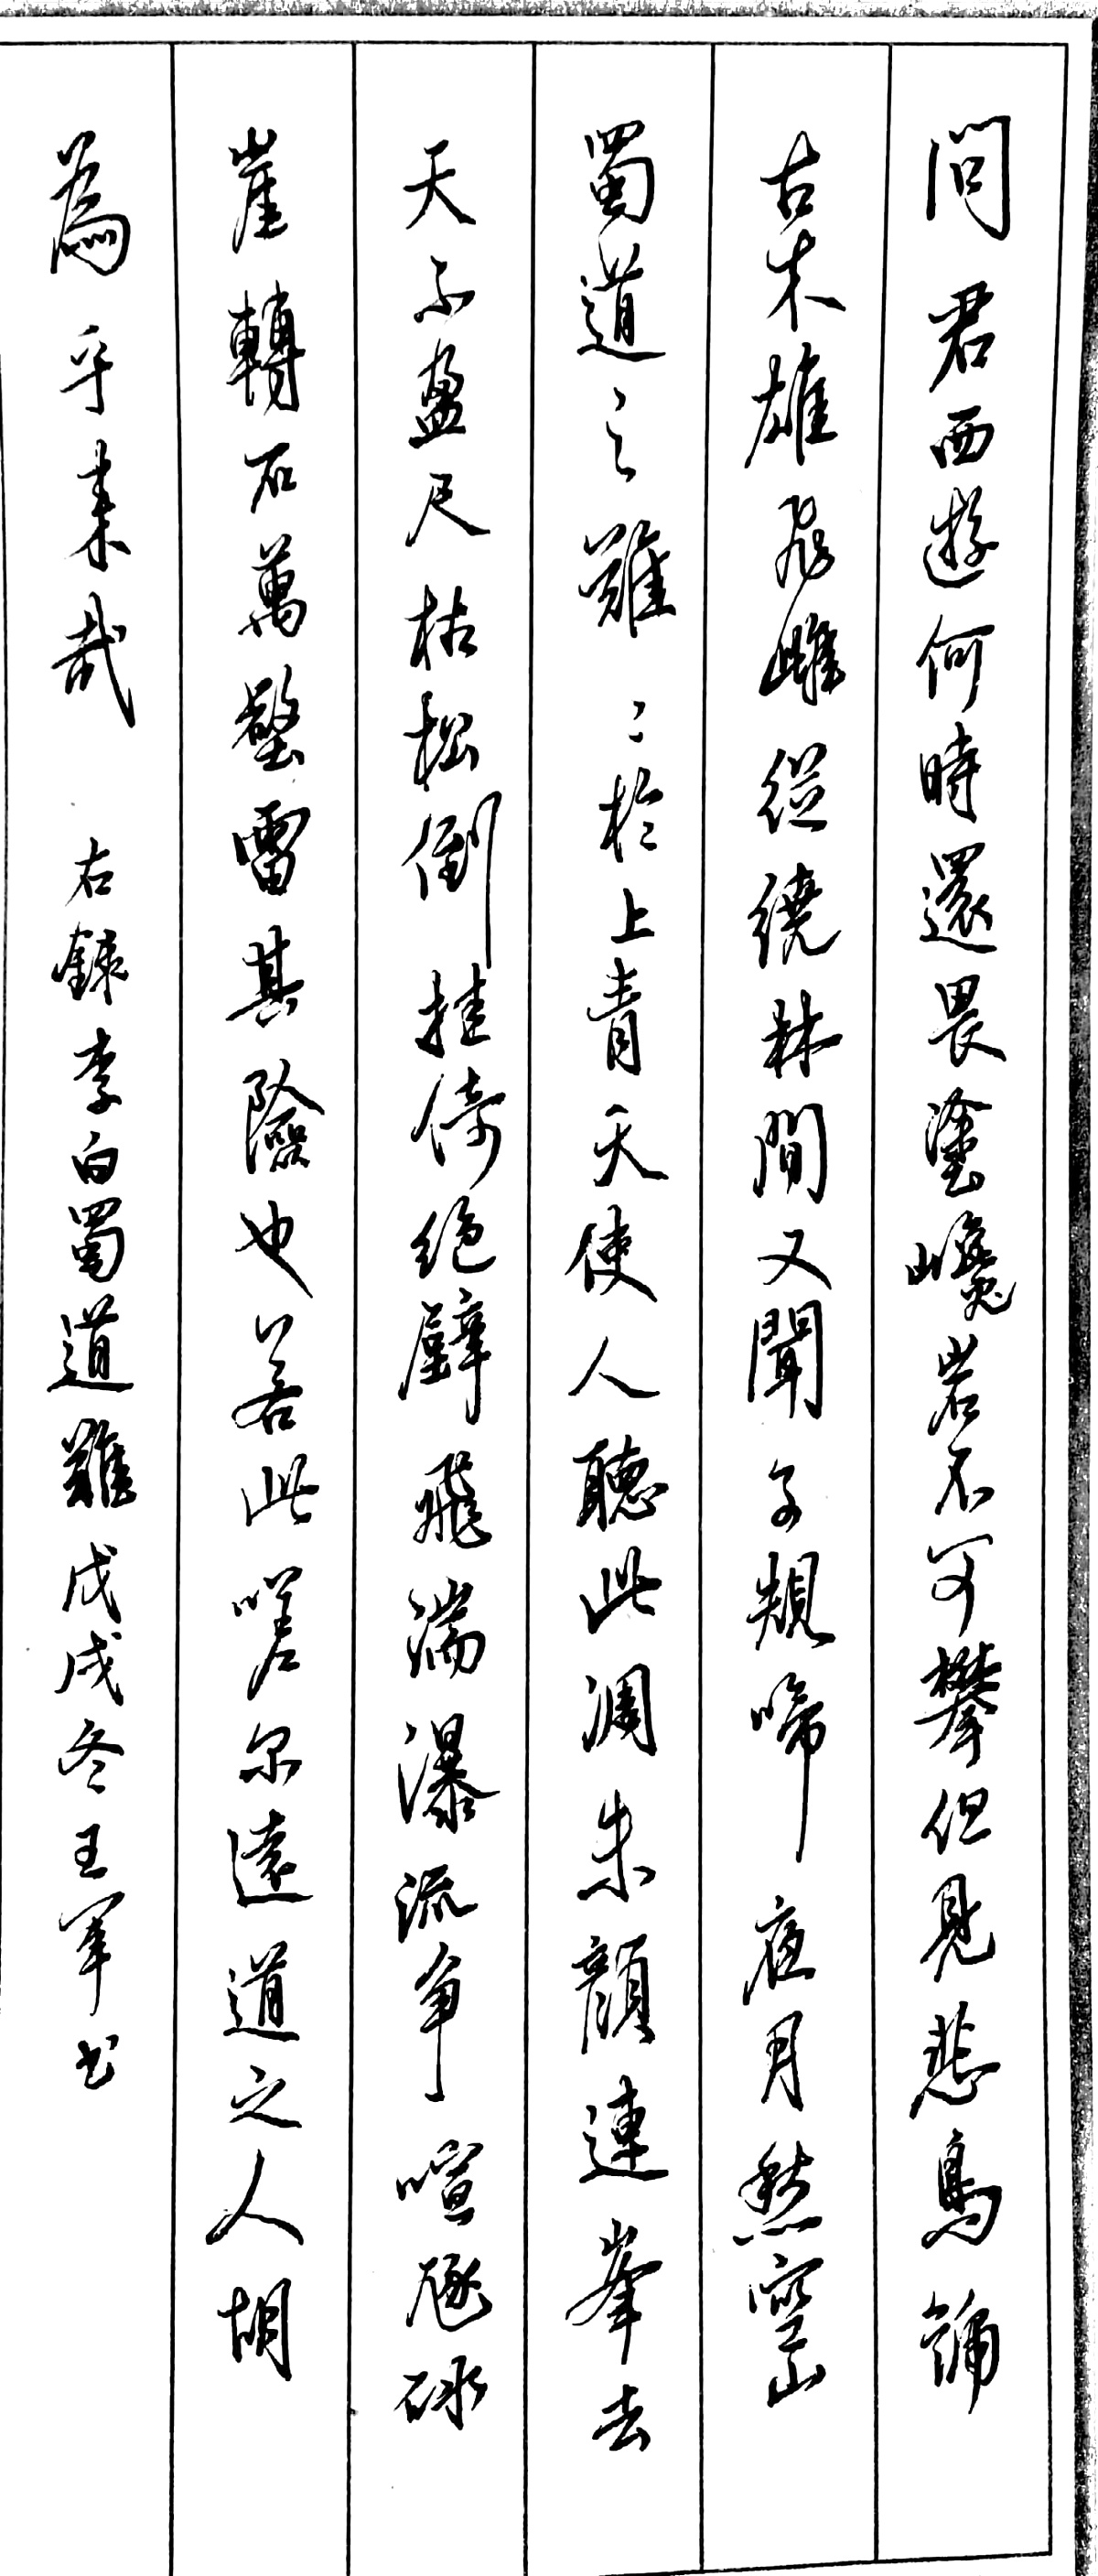 問君西遊何時還畏塗巉岩不可攀但見悲鳥號
古木雄飛雌從繞林間又聞子規啼夜月愁空山
蜀道之難〻於上青天使人聽此凋朱顏連峯去
天不盈尺枯松倒挂倚絕壁飛湍瀑流爭喧豗砯
崖轉石萬壑雷其險也若此嗟尔遠道之人胡
為乎来哉 右錄李白蜀道難戊戌冬王军书